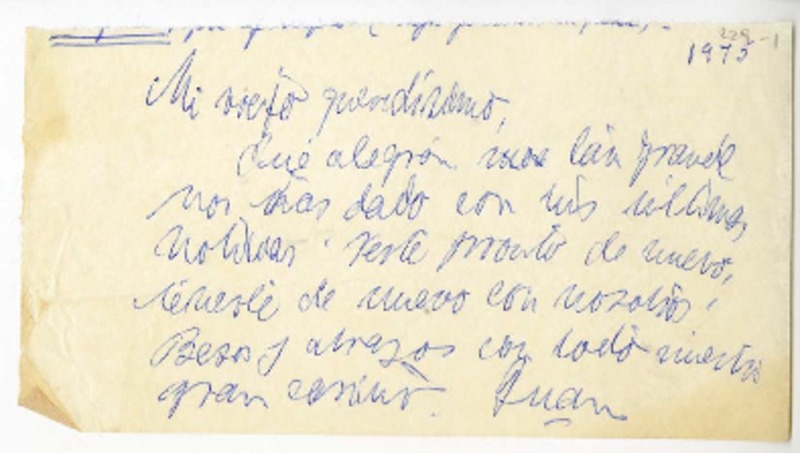 229-1
1973
Mi viejo queridísimo,
Qué alegría más tan grande
nos has dado con tus últimas
noticias: verte pronto de nuevo,
tenerte de nuevo con nosotros!
Besos y abrazos con todo nuestro
gran cariño. Juan